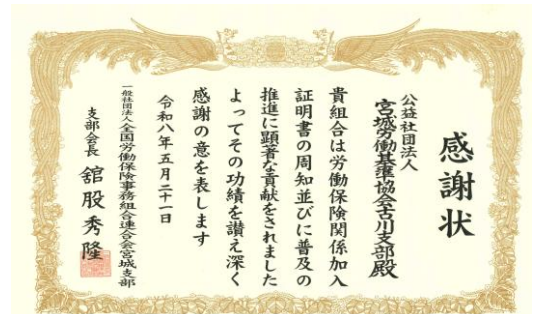 感謝状
公益社団法人
宮城労働基準協会古川支部殿
貴組合は労働保険関係加入
証明書の周知並びに普及の
推進に顕著な貢献をされました
よってその功績を讃え深く
感謝の意を表します
令和八年五月二十一日
一般社団法人全国労働保険事務組合連合会宮城支部
支部会長 舘股秀隆